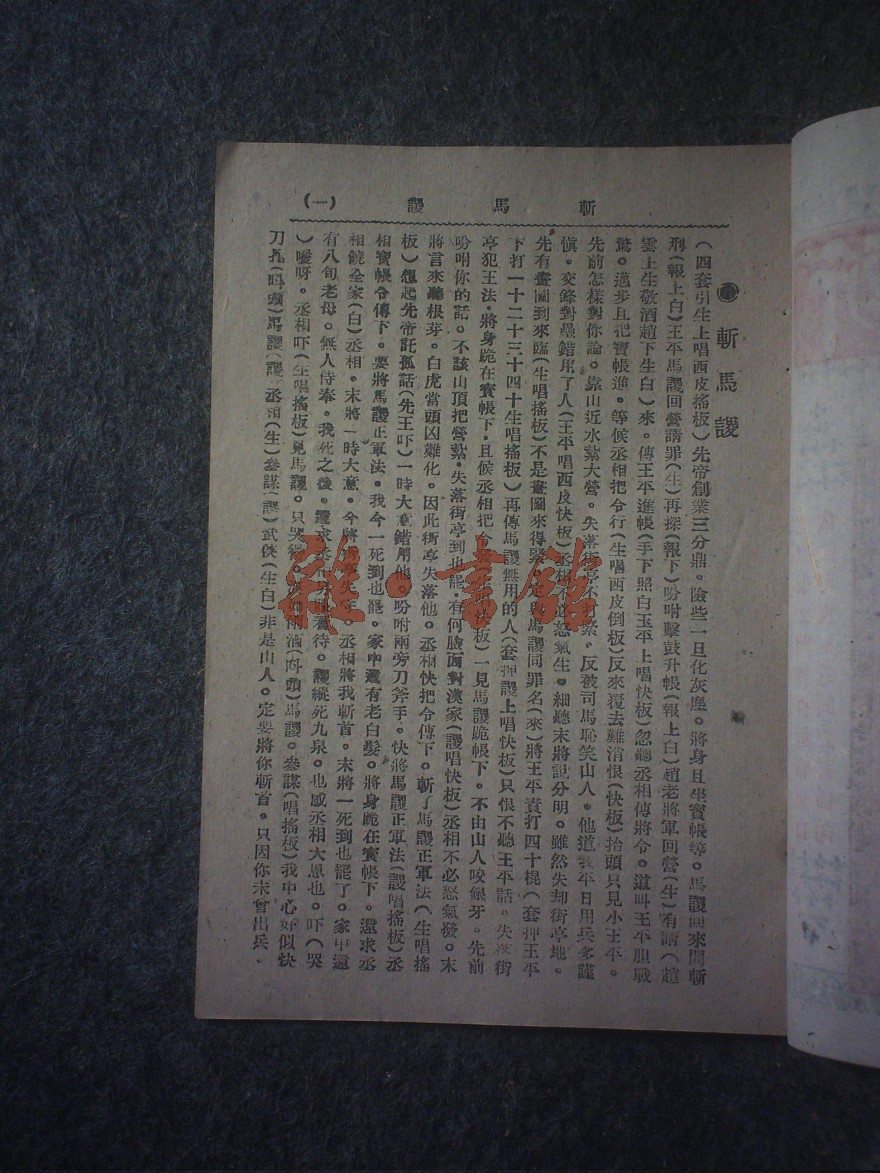 斬馬謖 (一)
斬馬謖
(四套引生上唱西皮搖板)先帝創業三分鼎。險些一旦化灰塵。將身且坐寳帳等。馬謖回來問斬
刑(報上白)王平馬謖回營請罪(生)再探(報下)吩咐擊鼓升帳(報上白)趙老將軍回營(生)有請(趙
雲上生敬酒趙下生白)來。傳王平進帳(手下照白王平上唱快板)忽聽丞相傳將令。道叫王平胆戰
驚。邁步且把寳帳進。等候丞相把令行(生唱西皮倒板)反來覆去難消恨(快板)抬頭只見小王平。
先前怎樣對你論。靠山近水紮大營。失落街亭不 緊。反被司馬恥笑山人。他道 平日用兵多謹
慎。交鋒對壘錯用了人(王平唱西皮快板)丞相不必怒氣生。細聽末將說分明。雖然失却街亭地。
先有畫圖到來臨(生唱搖板)不是畫圖來得緊。定與馬謖同罪名(來)將王平責打四十棍(套押王平
下打一十二十三十四十生唱搖板)再傳馬謖無用的人(套押謖上唱快板)只恨不聽王平話。失落街
亭犯王法。將身跪在寳帳下。且候丞相把令 快板)一見馬謖跪帳下。不由山人咬銀牙。先前
吩咐你的話。不該山頂把營紮。失落街亭到也罷。有何臉面對漢家(謖唱快板)丞相不必怒氣發。末
將言來聽根芽。白虎當頭凶難化。因此街亭失落他。丞相快把令傳下。斬了馬謖正軍法(生唱搖
板)想起先帝託孤話(先王吓)一時大意錯用他。吩咐兩旁刀斧手。快將馬謖正軍法(謖唱搖板)丞
相寳帳令傳下。要將馬謖正軍法。我今一死到也罷。家中還有老白髮。將身跪在寳帳下。還求丞
相饒全家(白)丞相。末將一時大意。今將街亭失 。丞相將我斬首。末將一死到也罷了。家中還
有八旬老母。無人侍奉。我死之後。還求丞 看待。謖縱死九泉。也感丞相大恩也。吓(哭
)噯呀。丞相吓(生唱搖板)見馬謖。只哭得。 洒(叫頭)馬謖。參謀(唱搖板)我中心好似快
刀 (叫頭)馬謖(謖)丞相(生)參謀(謖)武侯(生白)非是山人。定要將你斬首。只因你未曾出兵。
雜·書館